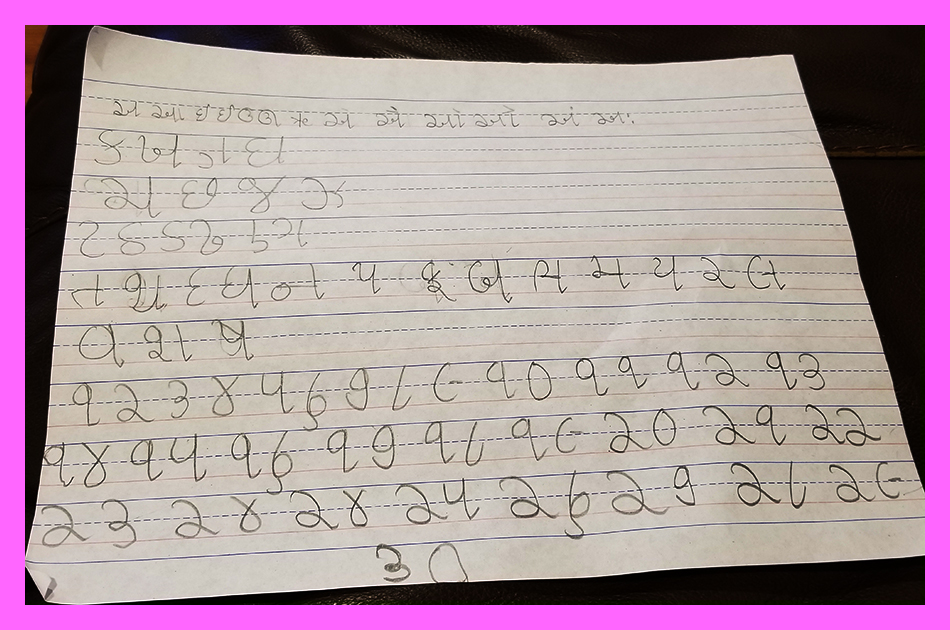 અ આ ઇ ઇ ઉ ઊ ઋ એ ઐ ઓ ઓ અં અઃ
ક ખ ગ ઘ
ચ છ જ ઝ
ટ ઠ ડ ઢ ણ
ત થ દ ધ ન પ ફ બ ભ મ ય ર લ
વ શ ષ
૧ ૨ ૩ ૪ ૫ ૬ ૭ ૮ ૯ ૧૦ ૧૧ ૧૨ ૧૩
૧૪ ૧૫ ૧૬ ૧૭ ૧૮ ૧૯ ૨૦ ૨૧ ૨૨
૨૩ ૨૪ ૨૪ ૨૫ ૨૬ ૨૭ ૨૮ ૨૯
૩૦